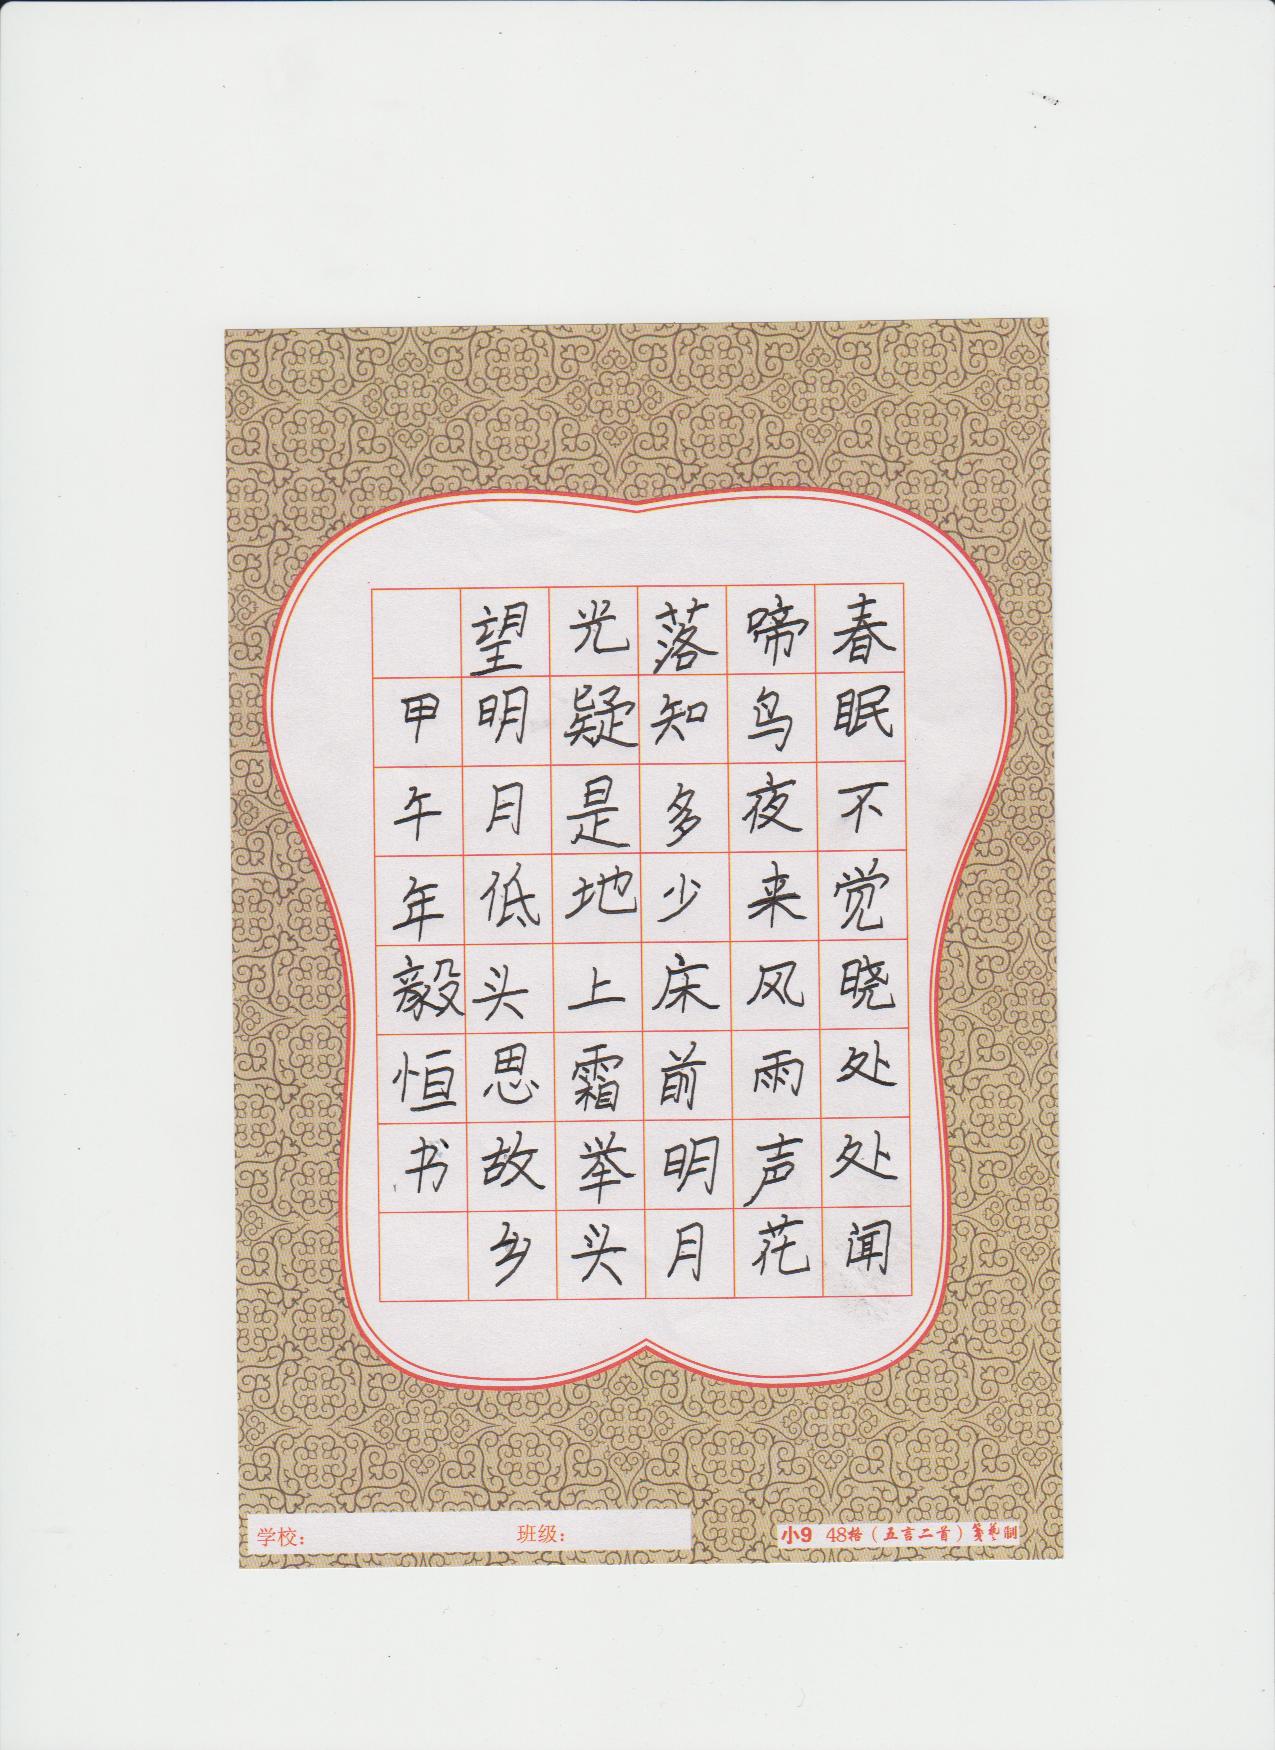 春眠不觉晓处处闻
啼鸟夜来风雨声花
落知多少床前明月
光疑是地上霜举头
望明月低头思故乡
甲午年毅恒书
学校：
班级：
小9 48格（五言二首）箋艺制